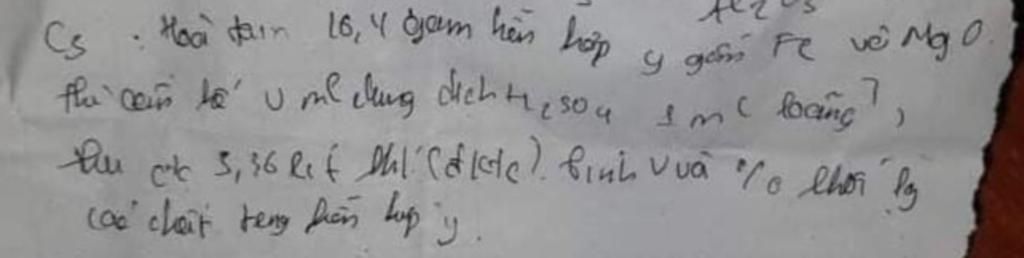 Al2O3
C5. Hoà tan 16,4 gam hỗn hợp y gồm Fe và MgO.
thì cần tối V ml dung dịch H2SO4 1M (loãng),
thu đc 3,36 lít khí (đktc). Tính V và % khối lg
các chất trong hỗn hợp y.